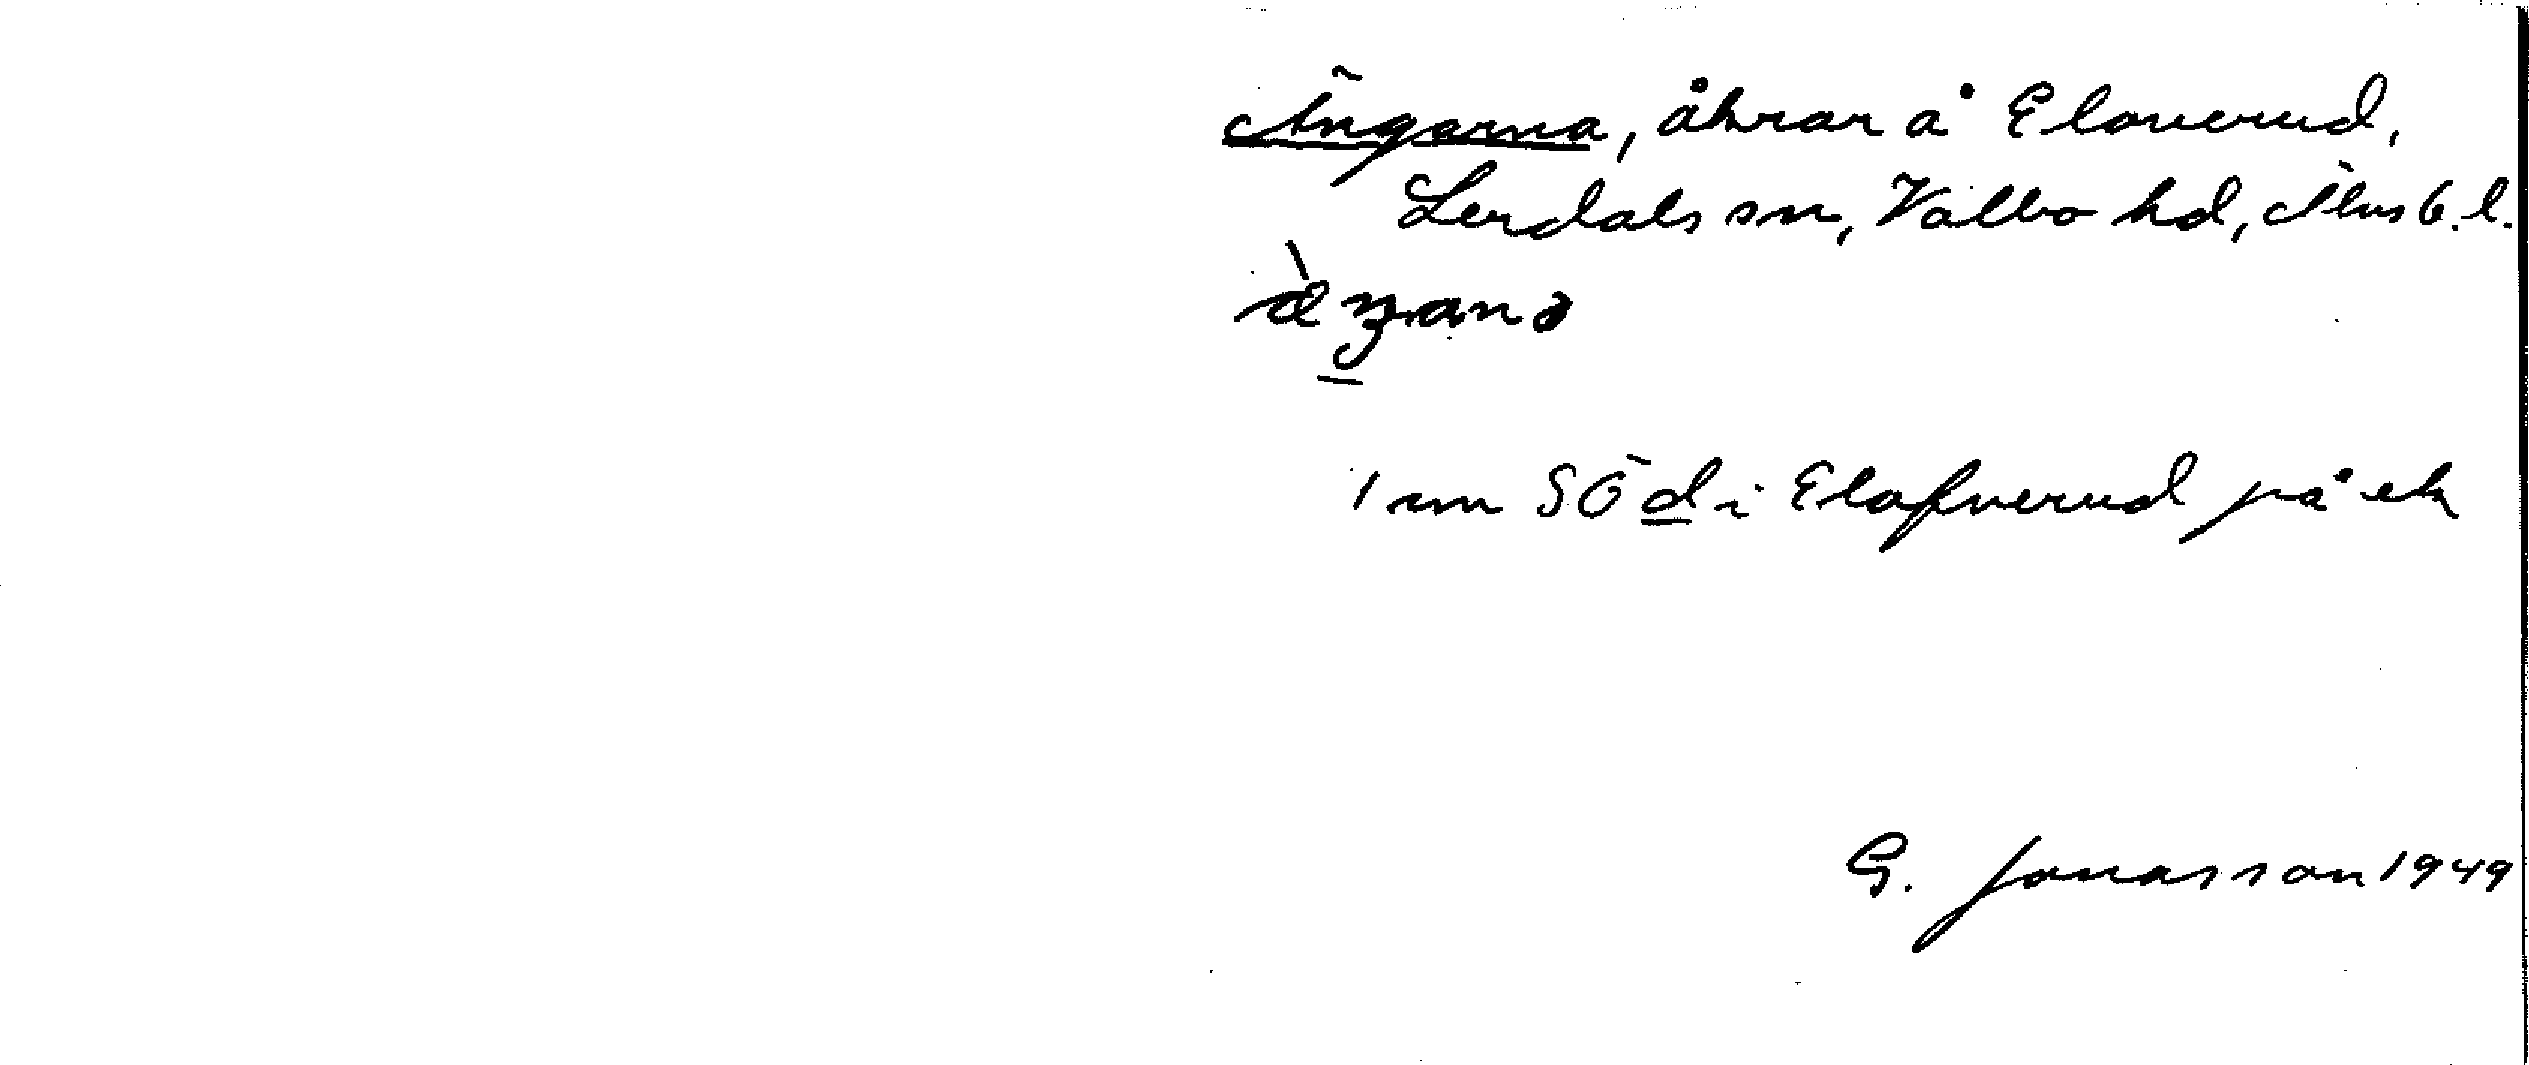 Ängarna, åkrar å Eloverud,
Lerdals sn, Valbo hd, Älvsb. l.
1 mm SÖ d i Elofverud på ek
G. Jonasson 1949